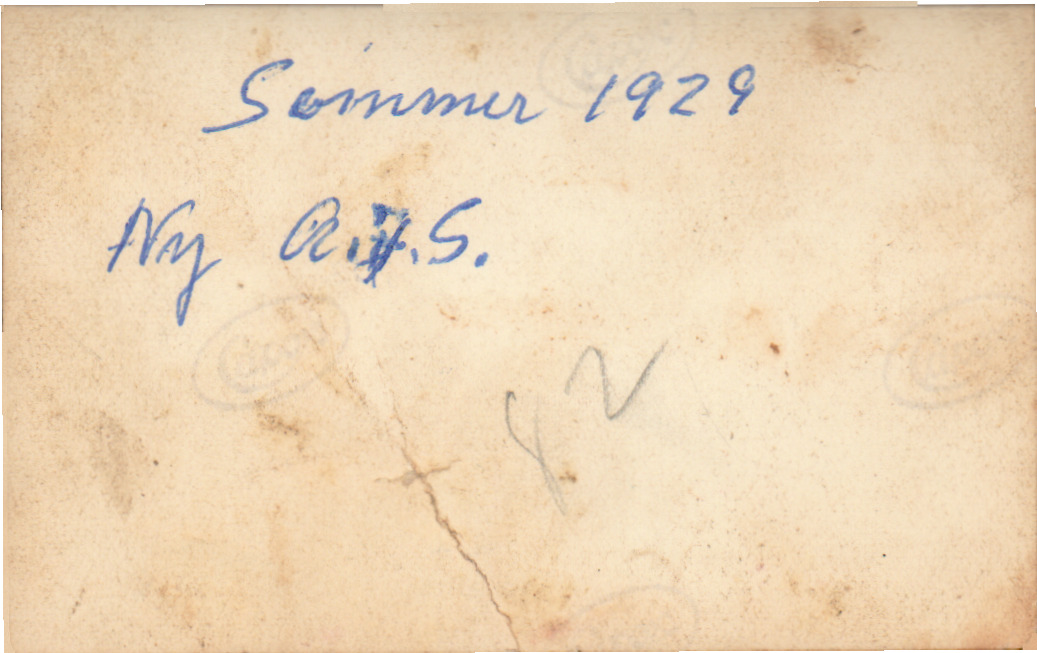 Sommer 1929
Ny A.J.S.
42